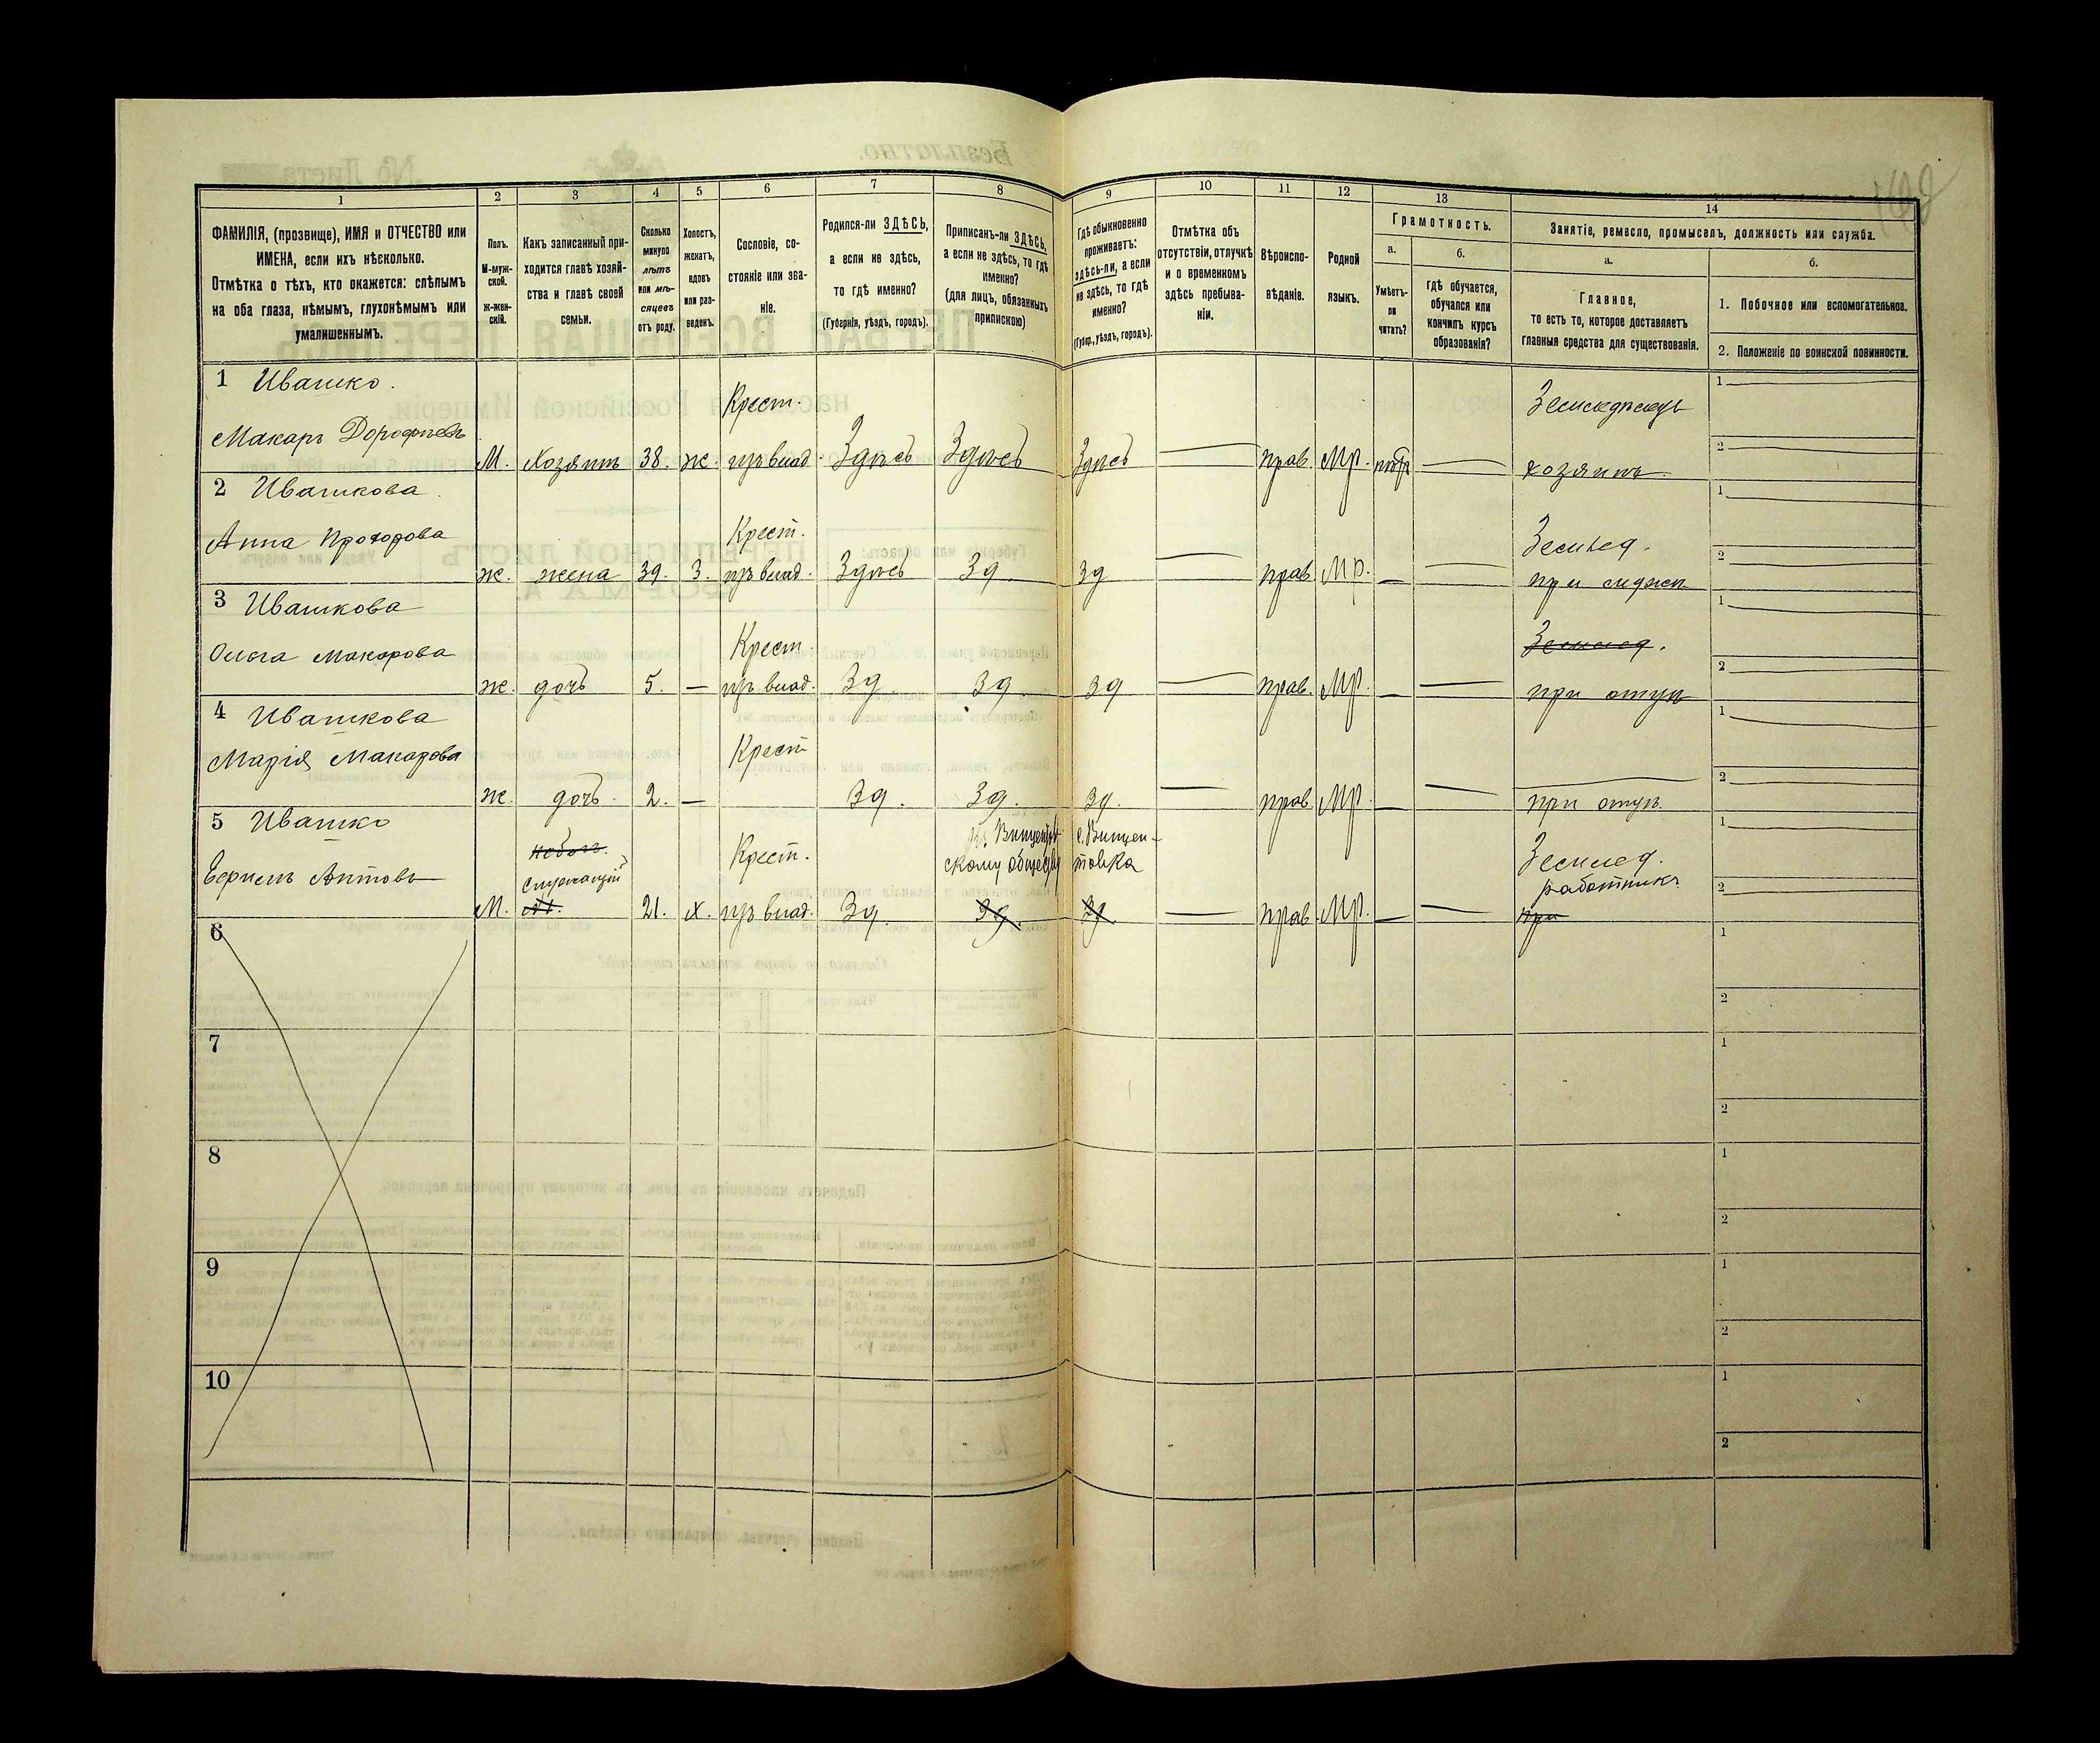 1
2
3
4
5
6
7
8
9
10
11
12
13
14
ФАМИЛІЯ, (прозвище), ИМЯ и ОТЧЕСТВО или
ИМЕНА, если ихъ нѣсколько.
Отмѣтка о тѣхъ, кто окажется: слѣпымъ
на оба глаза, нѣмымъ, глухонѣмымъ или
умалишеннымъ.
Полъ.
М-муж-
ской.
Ж-жен-
скій.
Какъ записанный при-
ходится главѣ хозяй-
ства и главѣ своей
семьи.
Сколько
минуло
лѣтъ
или мѣ-
сяцевъ
отъ роду.
Холостъ,
женатъ,
вдовъ
или раз-
веденъ.
Сословіе, со-
стояніе или зва-
ніе.
Родился-ли ЗДѢСЬ,
а если не здѣсь,
то гдѣ именно?
(Губернія, уѣздъ, городъ).
Приписанъ-ли ЗДѢСЬ,
а если не здѣсь, то гдѣ
именно?
(для лицъ, обязанныхъ
припискою)
Гдѣ обыкновенно
проживаетъ:
здѣсь-ли, а если
не здѣсь, то гдѣ
именно?
(Губер., уѣздъ, городъ).
Отмѣтка объ
отсутствіи, отлучкѣ
и о временномъ
здѣсь пребыва-
ніи.
Вѣроиспо-
вѣданіе.
Родной
языкъ.
Грамотность.
а.
Умѣетъ-
ли
читать?
б.
гдѣ обучается,
обучался или
кончилъ курсъ
образованія?
Занятіе, ремесло, промыселъ, должность или служба.
а.
Главное,
то есть то, которое доставляетъ
главныя средства для существованія.
б.
1. Побочное или вспомогательное.
2. Положеніе по воинской повинности.
1 Ивашко.
Макаръ Дорофѣевъ
М. Хозяинъ 38. ж. Крест.
изъ влад. Здѣсь Здѣсь Здѣсь — прав. Мр. — Земледѣлецъ
хозяинъ
1
2
2 Ивашкова
Анна Прохорова
ж. жена 39. З. Крест.
изъ влад. Здѣсь Зд. Зд — прав. Мр. — — Землед.
при мужѣ
1
2
3 Ивашкова
Ольга Макарова
ж. дочь 5. — Крест.
изъ влад. Зд. Зд Зд — прав. Мр. — — Землед.
при отцѣ
1
2
4 Ивашкова
Марія Макарова
ж. дочь 2. — Крест
Зд. Зд. Зд. — прав. Мр. — — при отцѣ
1
2
5 Ивашко
М. служащій 21. х. Крест.
изъ влад. Зд.
скому обществу
Зд.
с. Винцен-
товка
Зд — прав. Мр. — — Землед.
работникъ
при
1
2
6
1
2
7
1
2
8
1
2
9
1
2
10
1
2